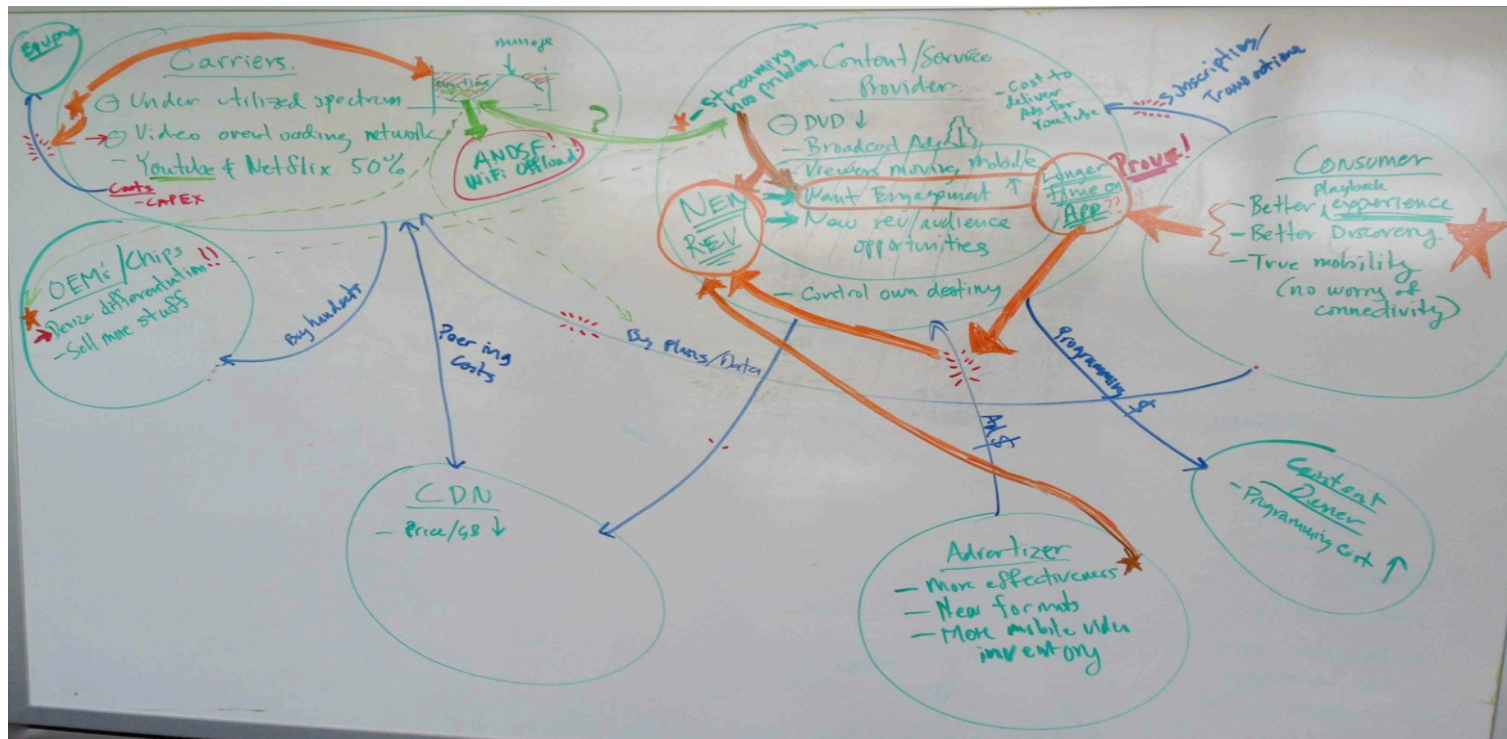 Carriers.
manage
- Under utilized spectrum
- Video overloading network
- Youtube & Netflix 50%
Costs
- CAPEX
ANDSF!
WiFi Offload!
?
OEM's/Chips
- Device differentiation!!
- Sell more stuff
Buy handsets
Peering
Costs
Buy plans/Data
CDN
- Price/GB ↓
- Streaming
has problem
Content/Service
Provider.
- Cost to
deliver
Ads for
Youtube
- DVD ↓
- Broadcast Ads
- Viewers moving mobile
Want Engagement ↑
New rev/audience
opportunities
- Control own destiny
NEW
REV
Longer
Time on
APP??
Prove!
Subscription/
Transactions
Consumer
playback
- Better experience
- Better Discovery
- True mobility
(no worry of
connectivity)
Programming $
Ad $
Content
Owner
- Programming Cost ↑
Advertizer
- More effectiveness
- New formats
- More mobile video
inventory